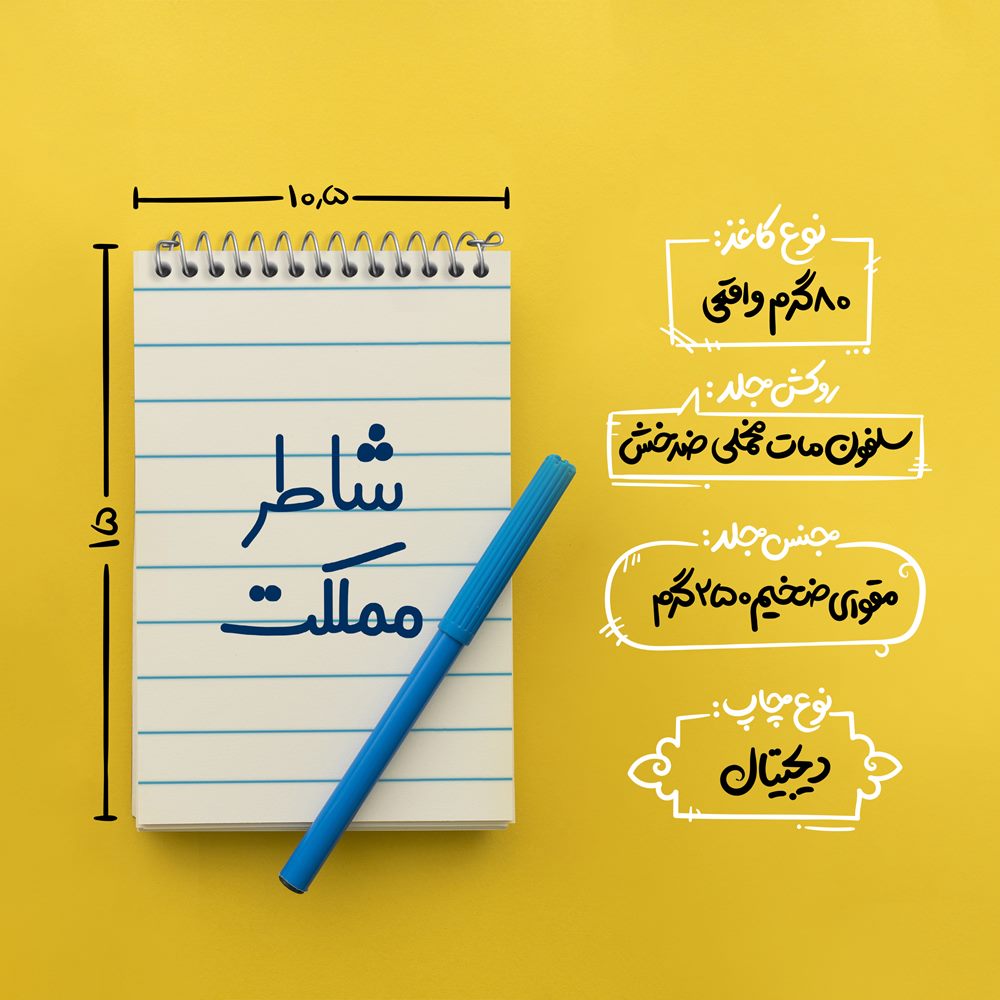 ۱۰,۵
۱۵
شاطر
مملکت
نوع کاغذ:
۸۰گرم واقعی
روکش جلد:
سلفون مات مخملی ضدخش
جنس جلد:
مقوای ضخیم ۲۵۰گرم
نوع چاپ:
دیجیتال